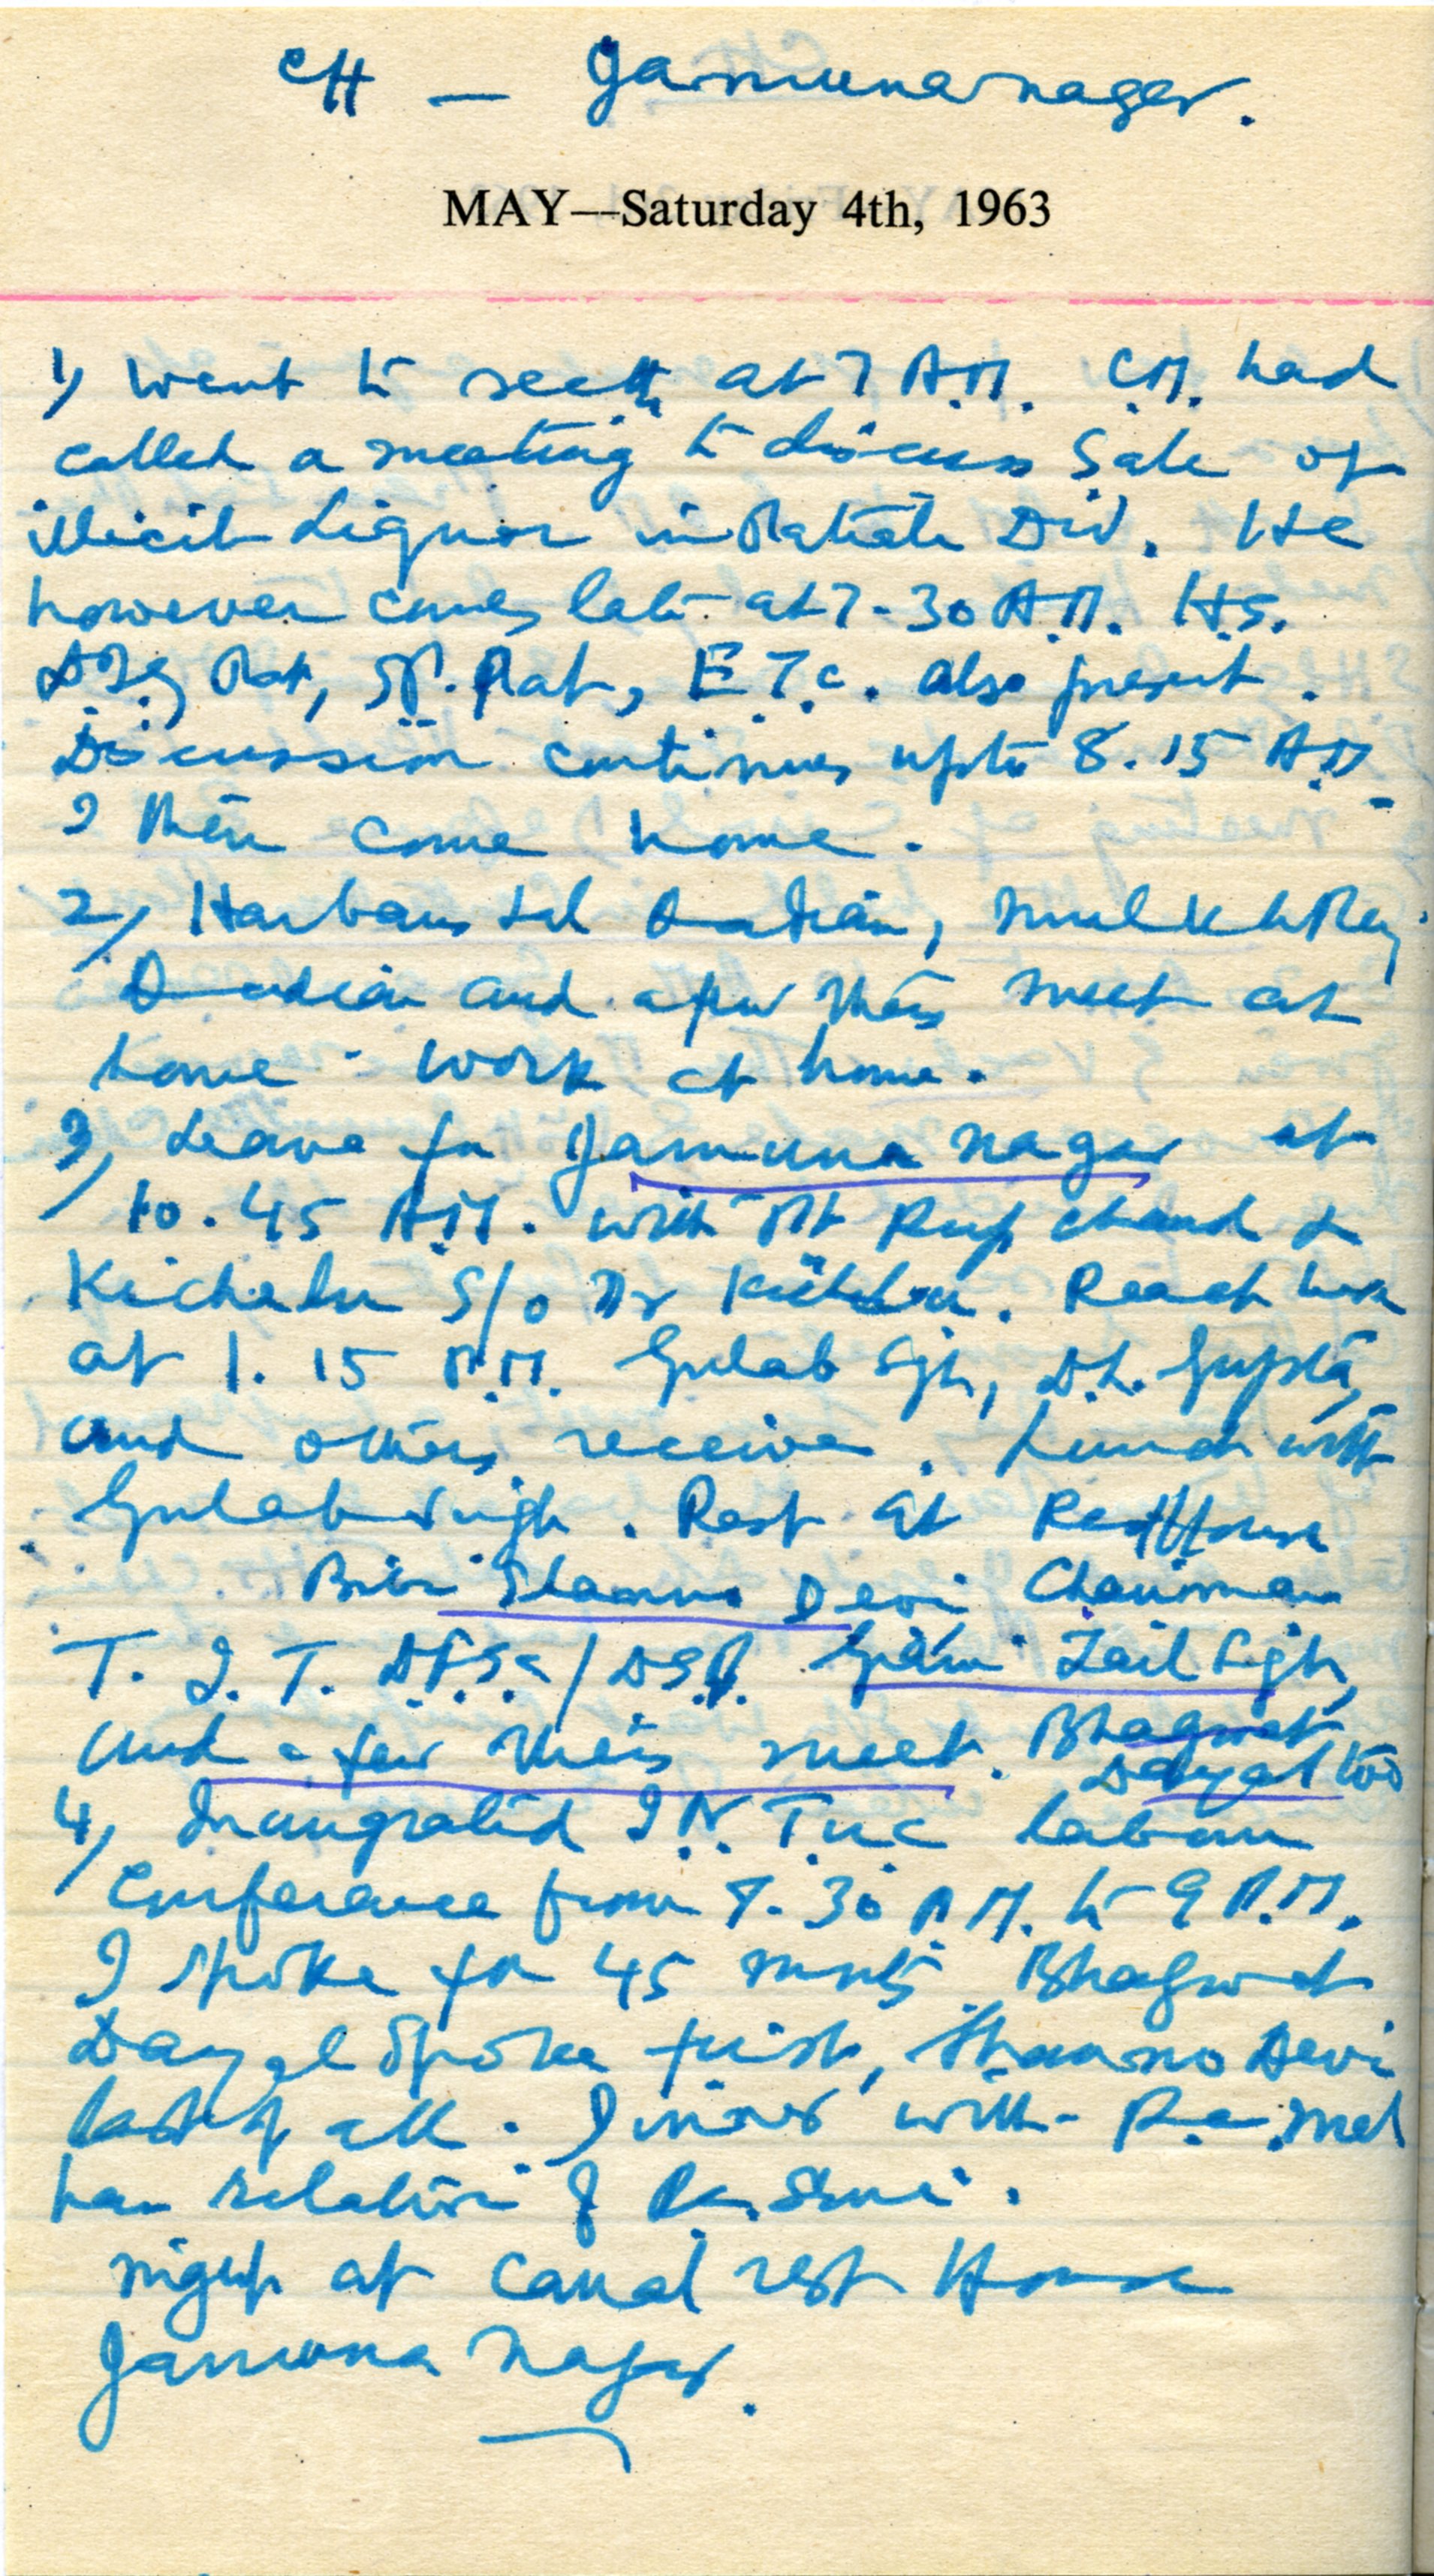 CH — Jamunanagar.
MAY—Saturday 4th, 1963
1) Went to sectt, at 7 A.M. C.M. had
called a meeting to discuss Sale of
illicit Liquor in Patiala Div. He
however comes late at 7-30 A.M. H.S.
D.I.G Pat, SP. Pat, E.T.C. also present.
Discussion continues upto 8.15 A.M.
I then come home.
2) Harbans Lal
and a few others meet at
home - work at home.
3, Leave for Jamuna Nagar at
10.45 A.M. with Pt Rup Chand &
Kichelu S/o Dr Kitchlu. Reach here
at 1.15 P.M. Gulab Sgh, D.L. Gupta,
and others receive. Lunch with
Gulab Singh. Rest at Rest House
Bibi Shanno Devi Chairman
T. I. T. D.F.S.C / D.S.P. Giani Zail Sigh,
and a few others meet. Bhagwat
Dayal too
4, Inaugrated I.N.T.U.C labour
Conference from 7.30 P.M. to 9 P.M.
I spoke for 45 mnts. Bhagwat
Dayal Spoke first, Shanno Devi
last of all. Dinner with R.C. Mal
han relation of
night at Canal rest House
Jamuna Nagar.